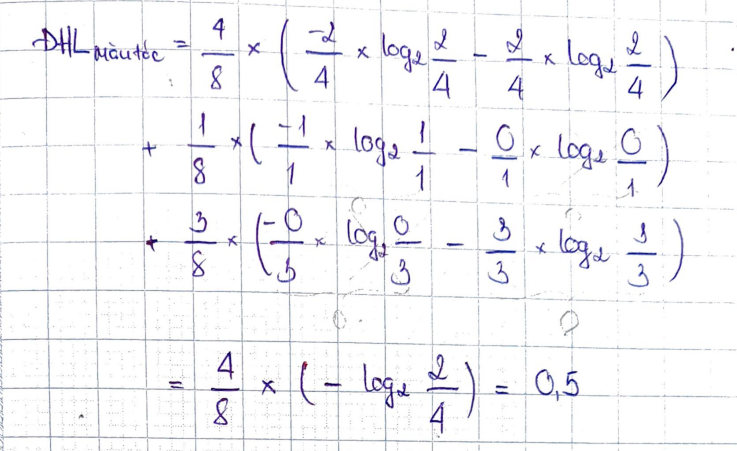 ĐHL màu tóc = 4/8 × ( -2/4 × log₂ 2/4 - 2/4 × log₂ 2/4 )
+ 1/8 × ( -1/1 × log₂ 1/1 - 0/1 × log₂ 0/1 )
+ 3/8 × ( -0/3 × log₂ 0/3 - 3/3 × log₂ 3/3 )
= 4/8 × ( - log₂ 2/4 ) = 0,5